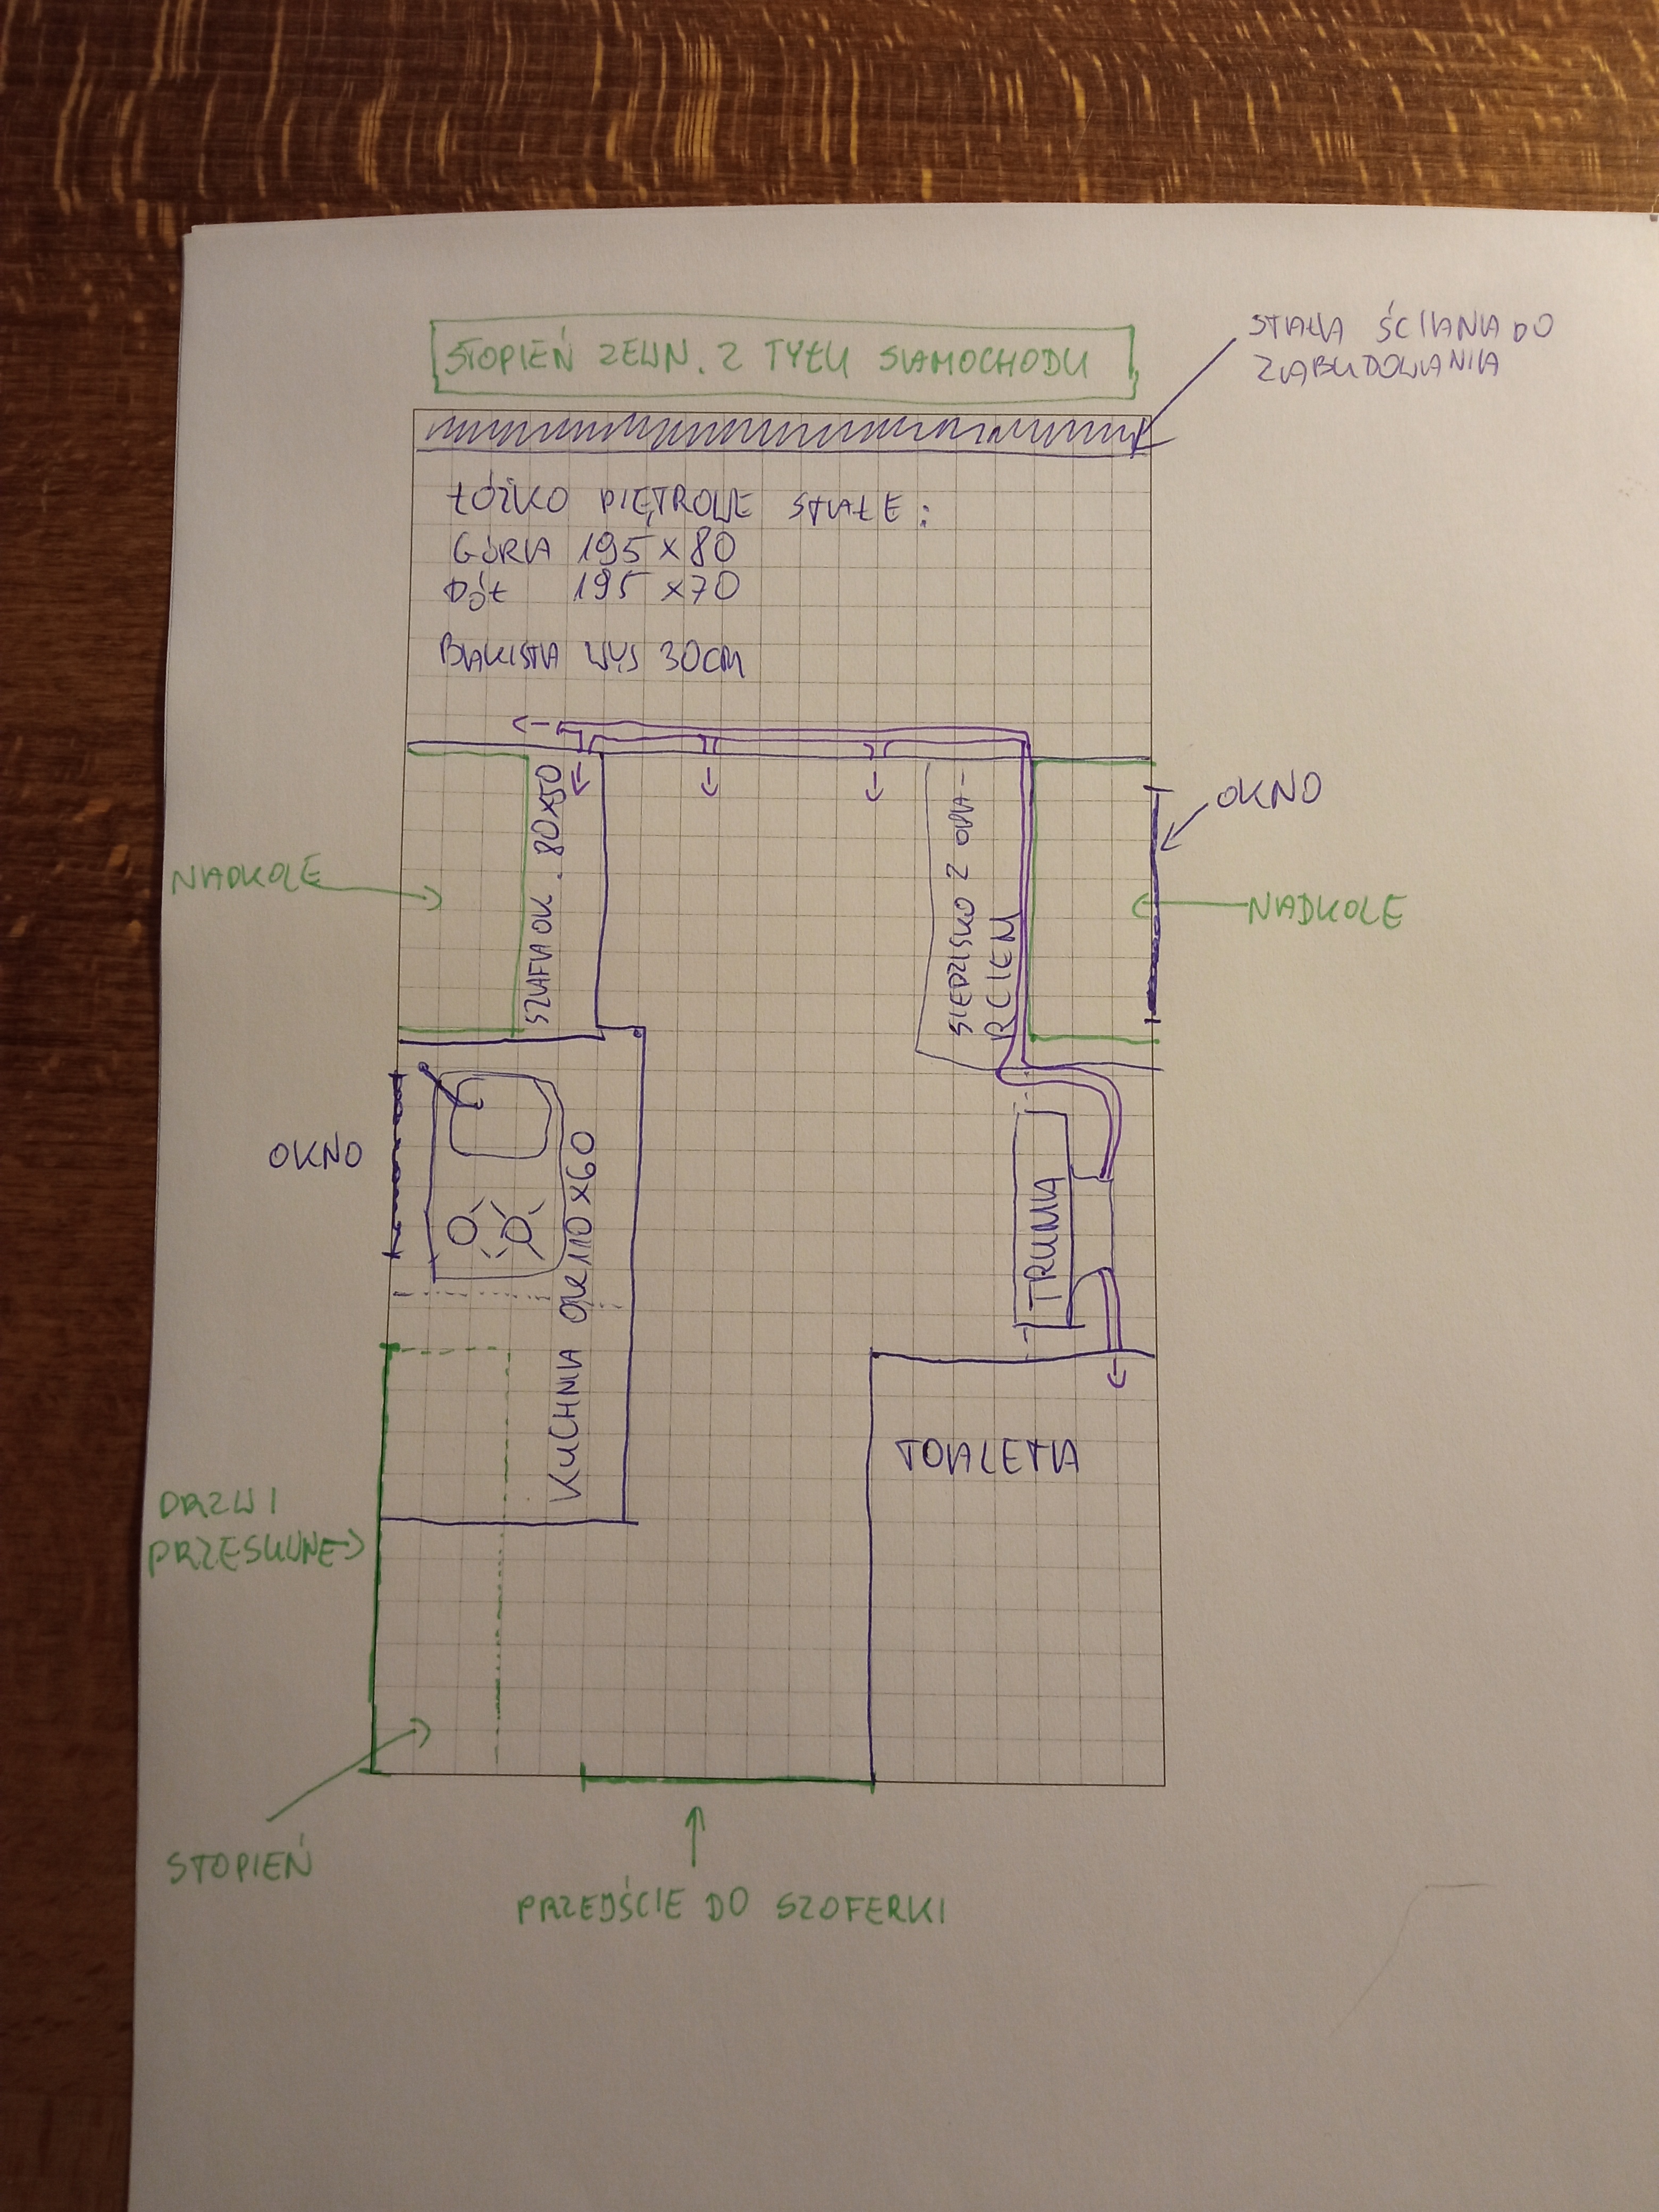 STOPIEŃ ZEWN. Z TYŁU SAMOCHODU
STAŁA ŚCIANA DO
ZABUDOWANIA
ŁÓŻKO PIĘTROWE STAŁE:
GÓRA 195 x 80
DÓŁ 195 x 70
BAKISTA WYS 30CM
SZAFA OK. 80x50
SIEDZISKO Z OPA-
RCIEM
OKNO
NADKOLE
NADKOLE
OKNO
KUCHNIA OK 110x60
TRUMA
TOALETA
DRZWI
PRZESUWNE
STOPIEŃ
PRZEJŚCIE DO SZOFERKI